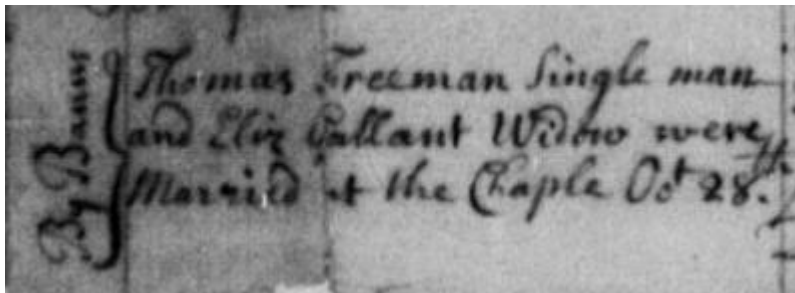 By Banns
Thomas Freeman Single man
and Eliz Gallant Widow were
Married at the Chaple Oct 28th.